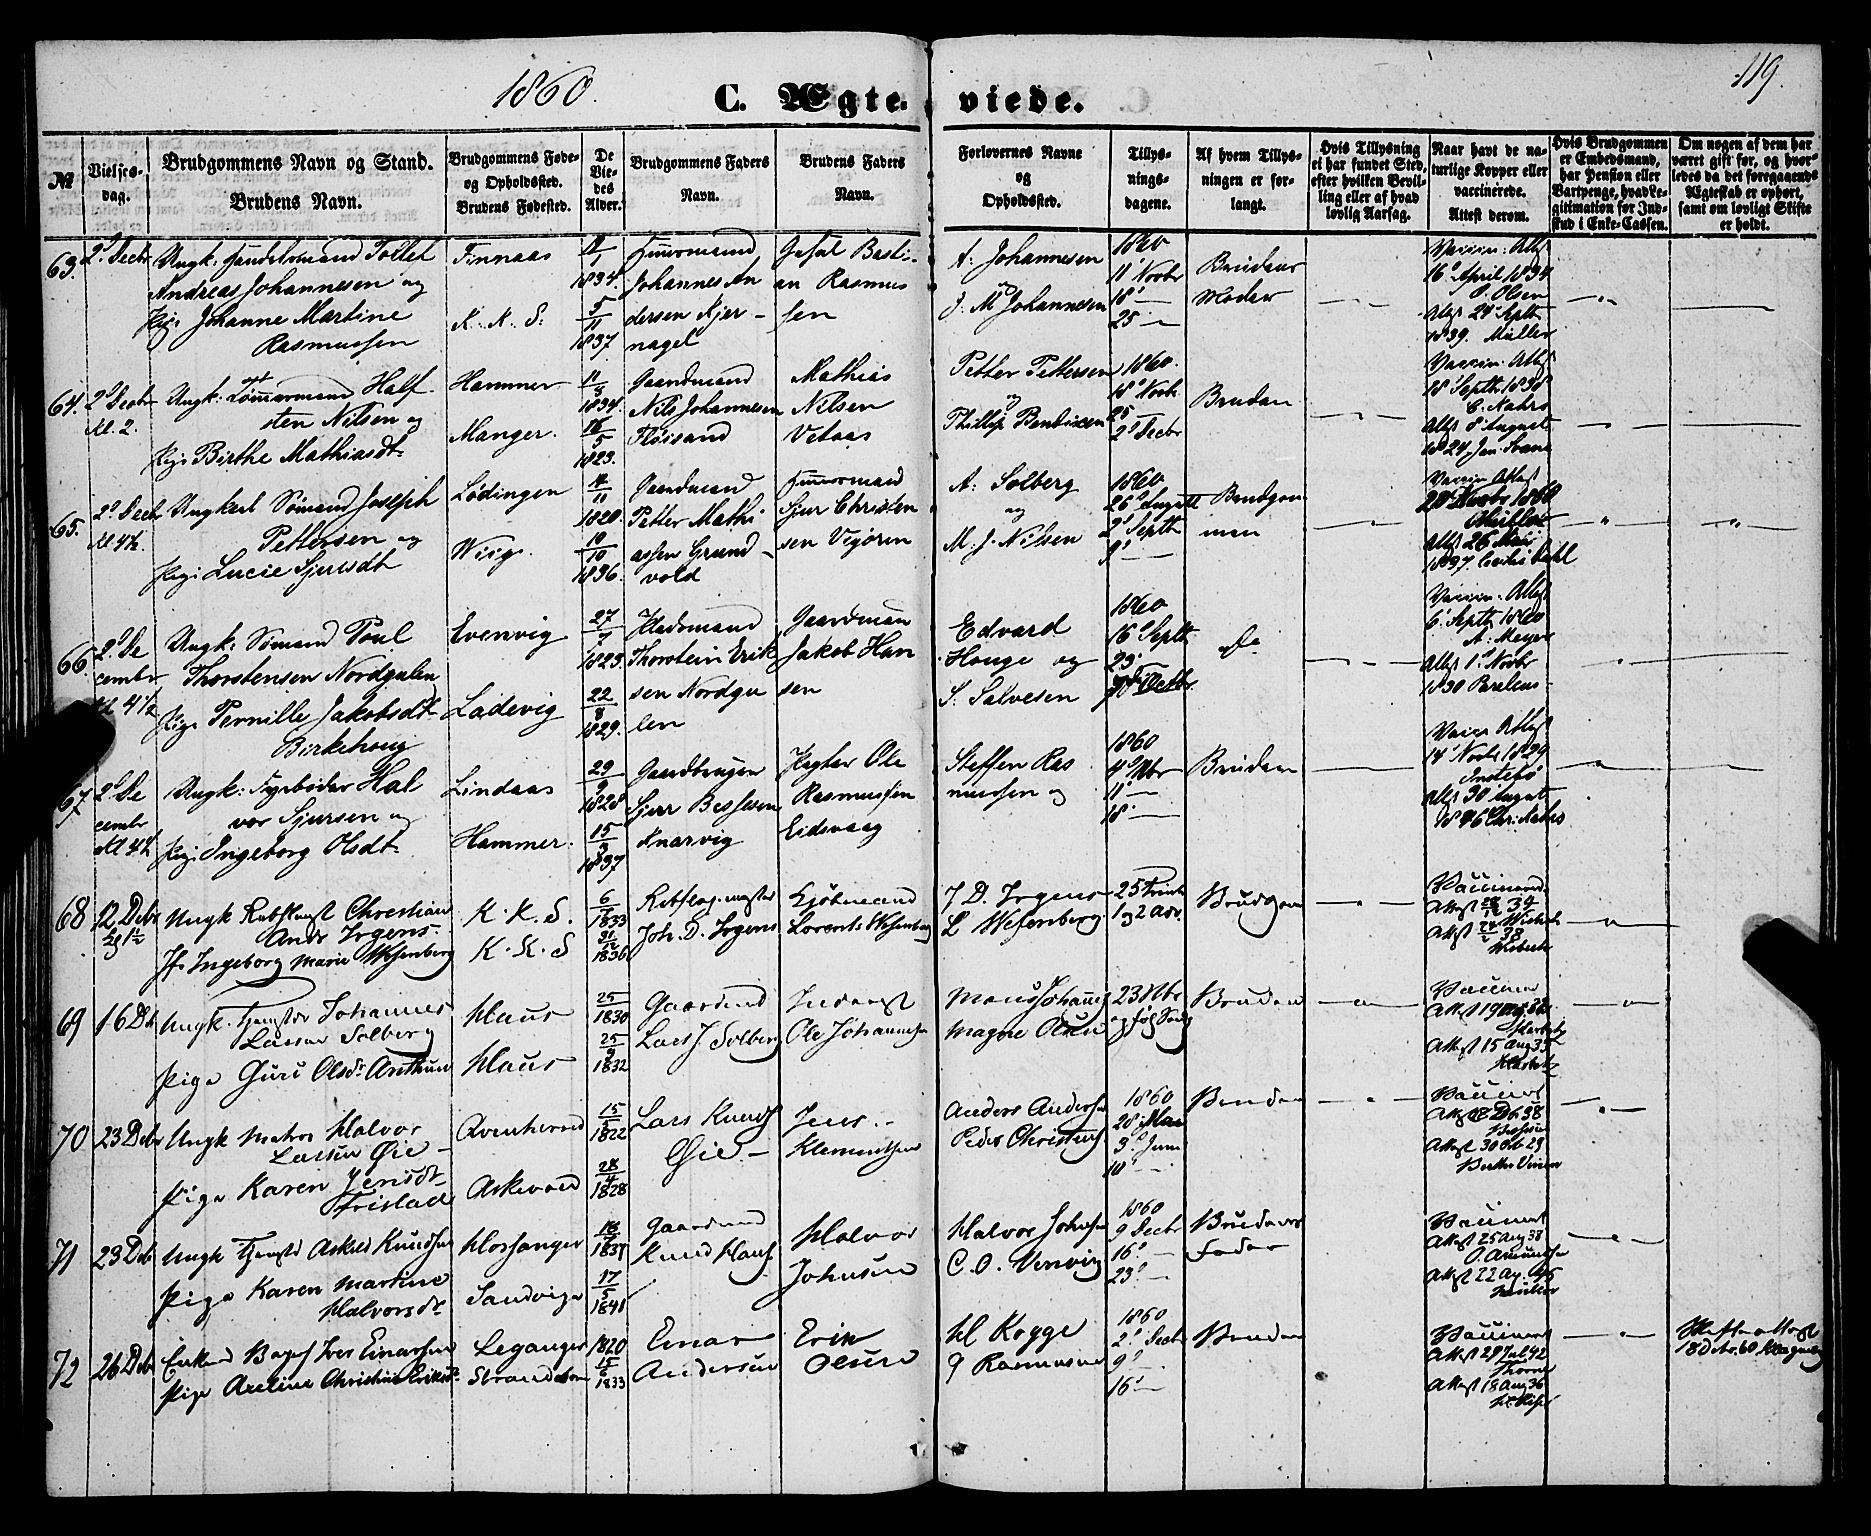 1860.
C. Ægte-viede.
119.
№
Vielses-
dag.
Brudgommens Navn og Stand.
Brudens Navn.
Brudgommens Føde-
og Opholdssted.
Brudens Fødested.
De
Vie-
des
Alder.
Brudgommens Faders
Navn.
Brudens Faders
Navn.
Forlovernes Navne
og
Opholdssted.
Tillys-
nings-
dagene.
Af hvem Tillys-
ningen er for-
langt.
Hvis Tillysning
ei har fundet Sted,
efter hvilken Bevil-
ling eller af hvad
lovlig Aarsag.
Naar havt de na-
turlige Kopper eller
vaccinerede.
Attest derom.
Hvis Brudgommen
er Embedsmand,
har Pension eller
Vartpenge, hvad Le-
gitimation for Ind-
skud i Enke-Cassen.
Om nogen af dem har
været gift før, og hvor-
ledes da det foregaaende
Ægteskab er ophørt,
samt om lovligt Skifte
er holdt.
63. 2' Decbr
Ungk: Handelsmand Tollef
Andreas Johannesen og
Pige Johanne Martine
Rasmussen
Finnaas
K. K. S.
1834.
5/11
1837
Huusmand
Johannes An
dersen Kjer-
nagel
Basti-
an Rasmus
sen
A. Johannesen
J. M. Johannesen
1860
11' Novbr
18' —
25 —
Brudens
Moder
Vaccin. Att.
16' April 1834
O. Olsen
Att. 24' Septb
1839. Müller
64. 2' Decbr
Kl. 2.
Ungk: Tømmermand Half
sten Nilsen og
Pige Birthe Mathiasdt.
Hammer
Manger.
1834.
1823.
Gaardmand
Nils Johannesen
Fløisand
Mathias
Nilsen
Vetaas
Petter Pettersen
og
Phillip Bendixen
1860.
18' Novbr
25
2' Decbr
Bruden
Vaccin. Att.
18' Septb 1838
C. Nahrs
Att. 8' August
1824. Jan. Svane
65. 2' Decbr
Kl. 4½.
Ungkarl Sømand Joseph
Pettersen og
Pige Lucie Sjursdt
Lødingen
Wiig.
1820
19/10
1836.
Gaardmand
Petter Mathi
assen Grund-
vold
Huusmand
Sjur Christen
sen Vigøren
A. Solberg
og
M. J. Nilsen
1860
26' August
2' Septb
9' —
Brudgom
men
Vaccin Attest
28' Novbr 1860
Att. 26 Mai
1837.
66. 2' De
cembr
Kl 4½
Ungk: Sømand Poul
Thorstensen Nordgulen
Pige Pernille Jakobsdt
Birkehoug
Evenvig
Ladevig
27/7
1823.
22/8
1829.
Pladsmand
Thorstein Erik
sen Nordgu
len
Gaardman
Jakob Han
sen
Edvard
Houge og
S. Salvesen
1860
16' Septb
23'
Octbr
do
Vaccin. Att.
6' Septb 1860
A. Meyer
Att. 1' Novbr
1830
67. 2' De
cembr
Kl 4½
Ungk: Fyrbøder Hal
vor Sjursen og
Pige Ingeborg Olsdt.
Lindaas
Hammer.
29/9
1828
15/9
1837
Gaardbruger
Sjur Bessesen
Knarvig
Pagter Ole
Rasmussen
Eidsvaag
Steffen Ras
mussen og
1860
4' Nbr
11' —
18' —
Bruden
Vaccin Attest
14' Novbr 1829
Att. 30 August
Chr. Nahrs
68 12 Debr
Ungk Rebslag Christian
Andr Irgens
Jfr Ingeborg Marie Wesenberg
K. K. S.
K. K. S
6/7
1833
31/12
1836
Rebslag. mester
Joh. D. Irgens
Kjøbmand
Lorents Wesenberg
J D. Irgens
L Wesenberg
25 Trinit
1 og 2 Adv.
Brudgom
Vaccinered.
Attest
Attest
69 16 Db
Ungk. Tjenestdr Johannes
Larsen Solberg
Pige Guri Olsdr Arnthun
Haus
Haus
25/
1830
25/9
1832
Gaardmd
Lars J. Solberg
Inderst
Ole Johannessen
Mons Johannes
Magne Olsen
23 Nbr
og følg Søndg
Bruden
Vaccinert
Attest
Attest 15 Aug 35
70 23 Debr
Ungk Matros Halvor
Larsen Øie
Pige Karen Jensdt
Tristad
Qvinherred
Askevold
15/5
1822
28/4
1828
Lars Knuds
Øie
Jens
Klementsen
Anders Andersen
Peder Christens
1860
28' Mai
3' Juni
10' —
Bruden
Vaccinert
Attest
Attest 30 Otb 29
71 23 Deb
Ungk Tjenestd Askild Knudsen
Pige Karen Martine
Halvorsdr
Hosanger
Sandviga
18/7
1837
17/5
1841
Gaardmd
Knud Hans
Halvor
Johnsen
Halvor Johnsen
C. O. Vervig
1860
9 Decbr
16' —
23' —
Brudens
Fader
Vaccinert
Attest 25 Aug 38
O. Amundsen
Attest 22 Ag. 45
Müller
72 26 Deb
Iver Einarsen
Pige Axeline Christine Eriksdr
Leganger
Strandebarm
1820
15/
1833
Einar
Andersen
Erik
Olsen
H Kogge
G Rasmussen
1860
2' Decbr
9' —
16' —
Bruden
Vaccinert
Attest 29 Jul 42
Attest 18 Aug 36
Skifte attest
18 Debr. 60